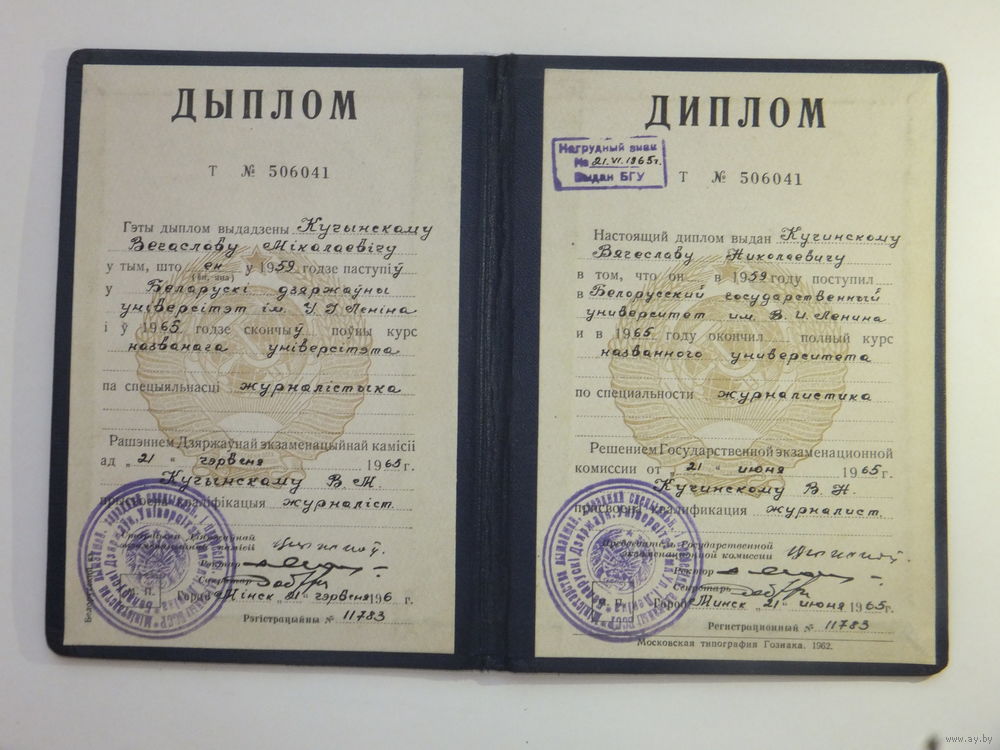 ДЫПЛОМ
Т № 506041
Гэты дыплом выдадзены Кучынскому
Вечаславу Мікалаевічу
у тым, што ён у 1959 годзе паступіў
(ён, яна)
у Беларускі дзяржаўны
універсітэт ім. У. І. Леніна
і ў 1965 годзе скончыў поўны курс
названага універсітэта
па спецыяльнасці журналістыка
Рашэннем Дзяржаўнай экзаменацыйнай камісіі
ад „21“ чэрвеня 1965 г.
Кучынскому В. М.
прысвоена кваліфікацыя журналіст.
Старшыня Дзяржаўнай
экзаменацыйнай камісіі
Рэктар
Сакратар
Горад Мінск „21“ чэрвеня 196 г.
Рэгістрацыйны № 11783
ДИПЛОМ
Нагрудный знак
№ 21.VI.1965г.
Выдан БГУ
Т № 506041
Настоящий диплом выдан Кучинскому
Вячеславу Николаевичу
в том, что он в 1959 году поступил
в Белорусский государственный
университет им. В. И. Ленина
и в 1965 году окончил полный курс
названного университета
по специальности журналистика
Решением Государственной экзаменационной
комиссии от „21“ июня 1965 г.
Кучинскому В. Н.
присвоена квалификация журналист.
Председатель Государственной
экзаменационной комиссии
Ректор
Секретарь
М. П. Город Минск „21“ июня 1965 г.
Регистрационный № 11783
Московская типография Гознака. 1962.
www.ay.by